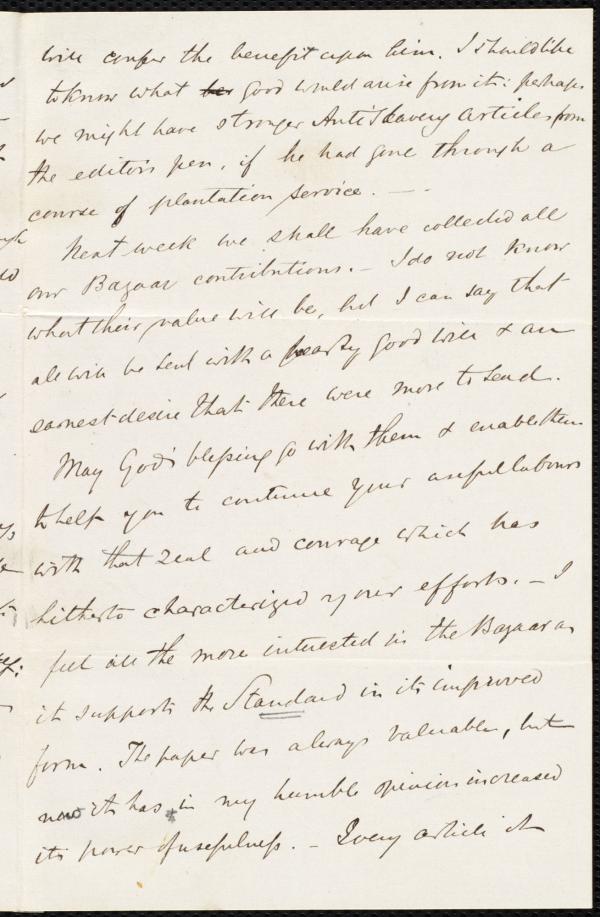 will confer the benefit upon him. I should like
to know what good would arise from it: perhaps
we might have stronger Anti Slavery articles from
the editor's pen, if he had gone through a
course of plantation service. —
Next week we shall have collected all
our Bazaar contributions. — I do not know
what their value will be, but I can say that
all will be sent with a hearty good will & an
earnest desire that there were more to send.
May God's blessing go with them & enable them
to help you to continue your useful labours
with that zeal and courage which has
hitherto characterized your efforts. — I
feel all the more interested in the Bazaar as
it supports the Standard in its improved
form. The paper was always valuable, but
now it has in my humble opinion increased
its power of usefulness. — Every article it